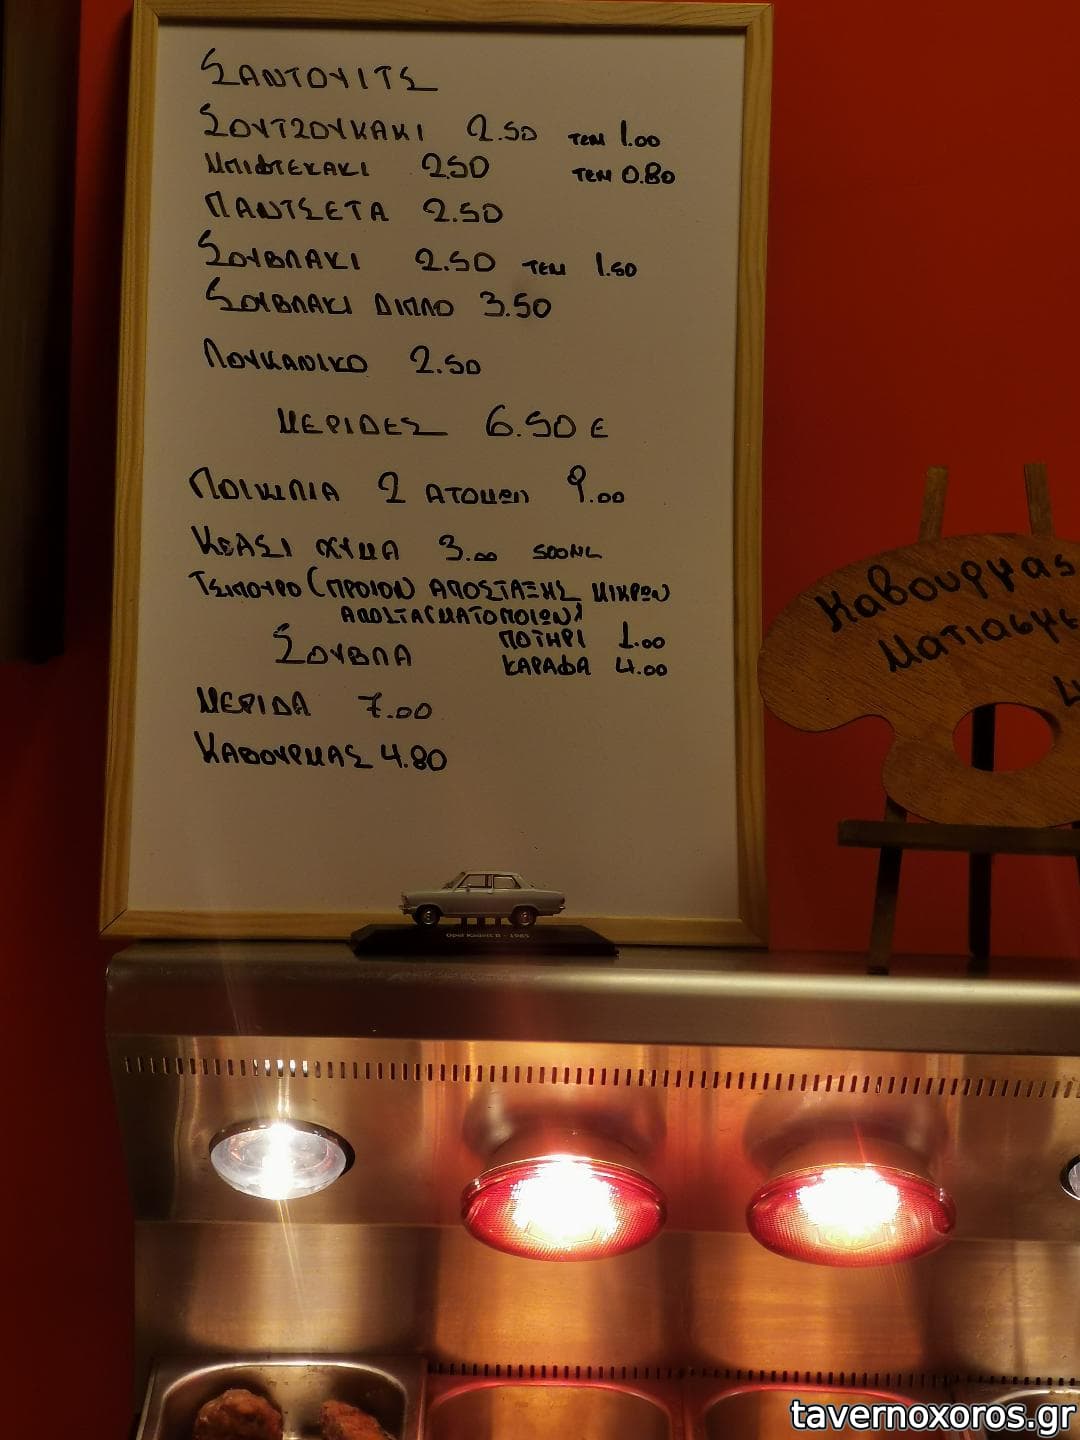 ΣΑΝΤΟΥΙΤΣ
ΣΟΥΤΖΟΥΚΑΚΙ 2.50 ΤΕΜ 1.00
ΜΠΙΦΤΕΚΑΚΙ 2.50 ΤΕΜ 0.80
ΠΑΝΤΣΕΤΑ 2.50
ΣΟΥΒΛΑΚΙ 2.50 ΤΕΜ 1.50
ΣΟΥΒΛΑΚΙ ΔΙΠΛΟ 3.50
ΛΟΥΚΑΝΙΚΟ 2.50
ΜΕΡΙΔΕΣ 6.50 €
ΠΟΙΚΙΛΙΑ 2 ΑΤΟΜΩΝ 9.00
ΚΡΑΣΙ ΧΥΜΑ 3.00 500ML
ΤΣΙΠΟΥΡΟ (ΠΡΟΙΟΝ ΑΠΟΣΤΑΞΗΣ ΜΙΚΡΩΝ
ΑΠΟΣΤΑΓΜΑΤΟΠΟΙΩΝ)
ΠΟΤΗΡΙ 1.00
ΣΟΥΒΛΑ ΚΑΡΑΦΑ 4.00
ΜΕΡΙΔΑ 7.00
ΚΑΒΟΥΡΜΑΣ 4.80
Καβουρμας
Opel Kadett B - 1965
tavernoxoros.gr